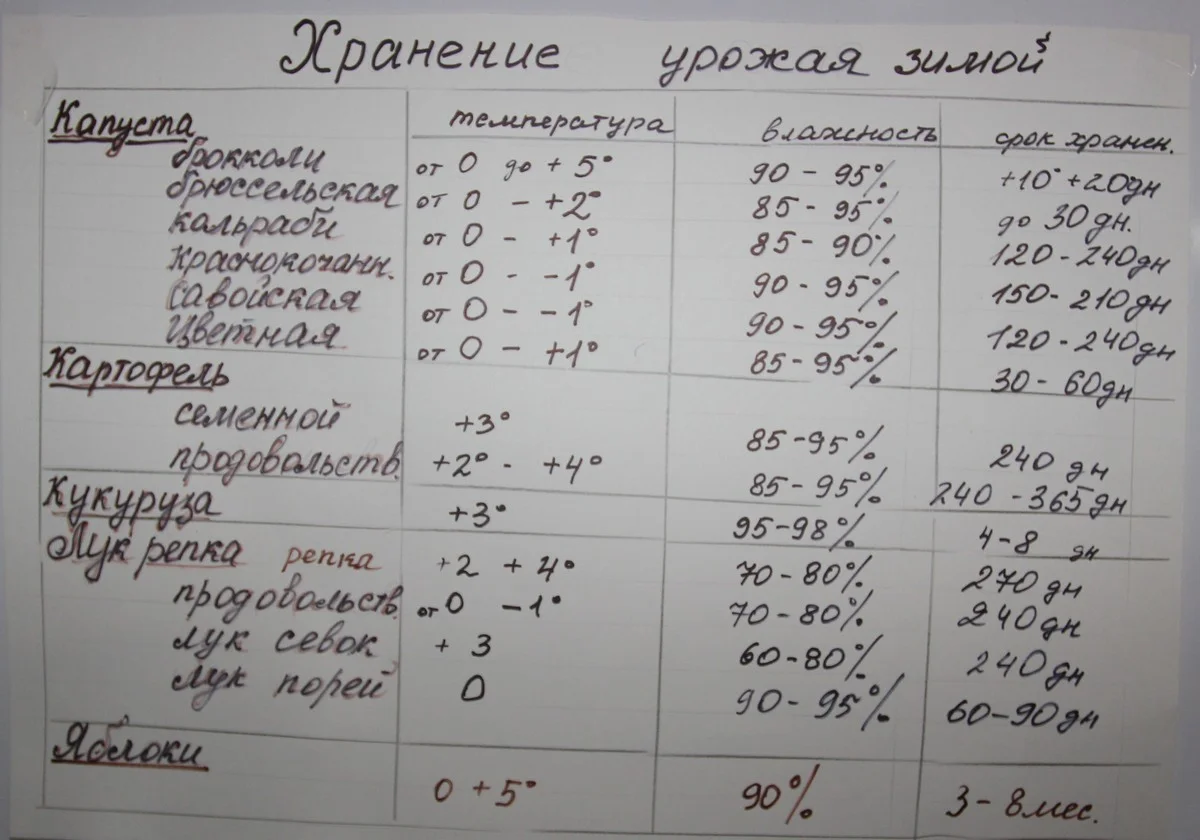 Хранение урожая зимой
Капуста температура влажность срок хранен.
брокколи от 0 до + 5° 90 - 95% +10° +20дн
брюссельская от 0 - +2° 85 - 95% до 30 дн.
кальраби от 0 - +1° 85 - 90% 120 - 240дн
краснокочанн. от 0 - -1° 90 - 95% 150 - 210дн
савойская от 0 - -1° 90 - 95% 120 - 240дн
Цветная от 0 - +1° 85 - 95% 30 - 60дн
Картофель
семенной +3° 85 - 95% 240 дн
продовольств. +2° - +4° 85 - 95% 240 - 365дн
Кукуруза +3° 95 - 98% 4 - 8 дн
Лук репка репка +2 + 4° 70 - 80% 270 дн
продовольств. от 0 - 1° 70 - 80% 240 дн
лук севок + 3 60 - 80% 240 дн
лук порей 0 90 - 95% 60 - 90 дн
Яблоки
0 + 5° 90% 3 - 8 мес.